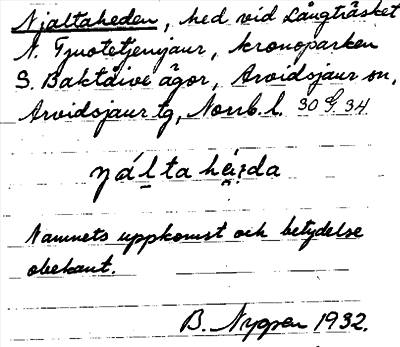 Njaltaheden, hed vid Långträsket
N. Tjuotetjenjaur, kronoparken
S. Baktåive ägor, Arvidsjaur sn,
Arvidsjaur tg, Norrb. l. 30 G. 34
ŋálta hèi̯da
Namnets uppkomst och betydelse
obekant.
B. Nygren 1932.